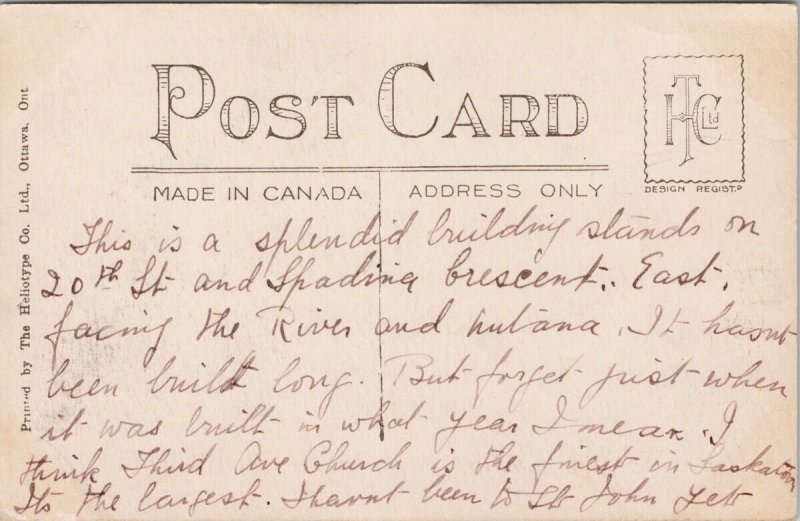 POST CARD
MADE IN CANADA
ADDRESS ONLY
HTC Ltd
DESIGN REGIST.D
Printed by The Heliotype Co. Ltd., Ottawa, Ont.
This is a splendid building stands on
20th St and Spadina Crescent. East.
facing the River and nutana. It hasnt
been built long. But forget just when
it was built in what year I mean. I
think Third Ave Church is the finest in Saskatoon
Its the largest. I havnt been to St John yet